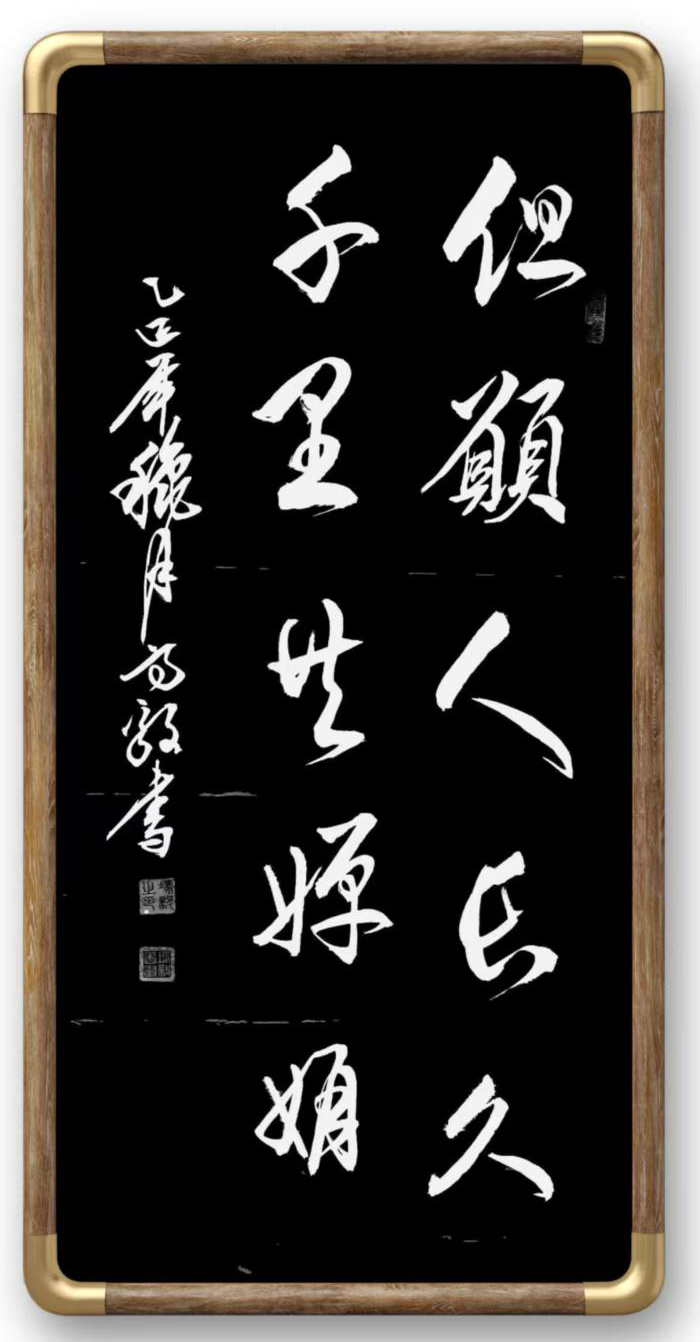 但願人長久
千里共嬋娟
乙巳年穐月馮毅書